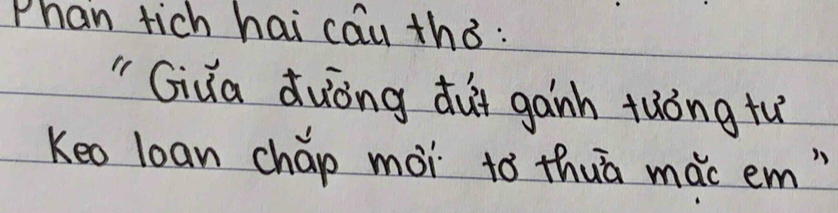 Phân tích hai câu thơ:
"Giữa đường đứt gánh tương tư
Keo loan chắp mối tơ thừa mặc em"